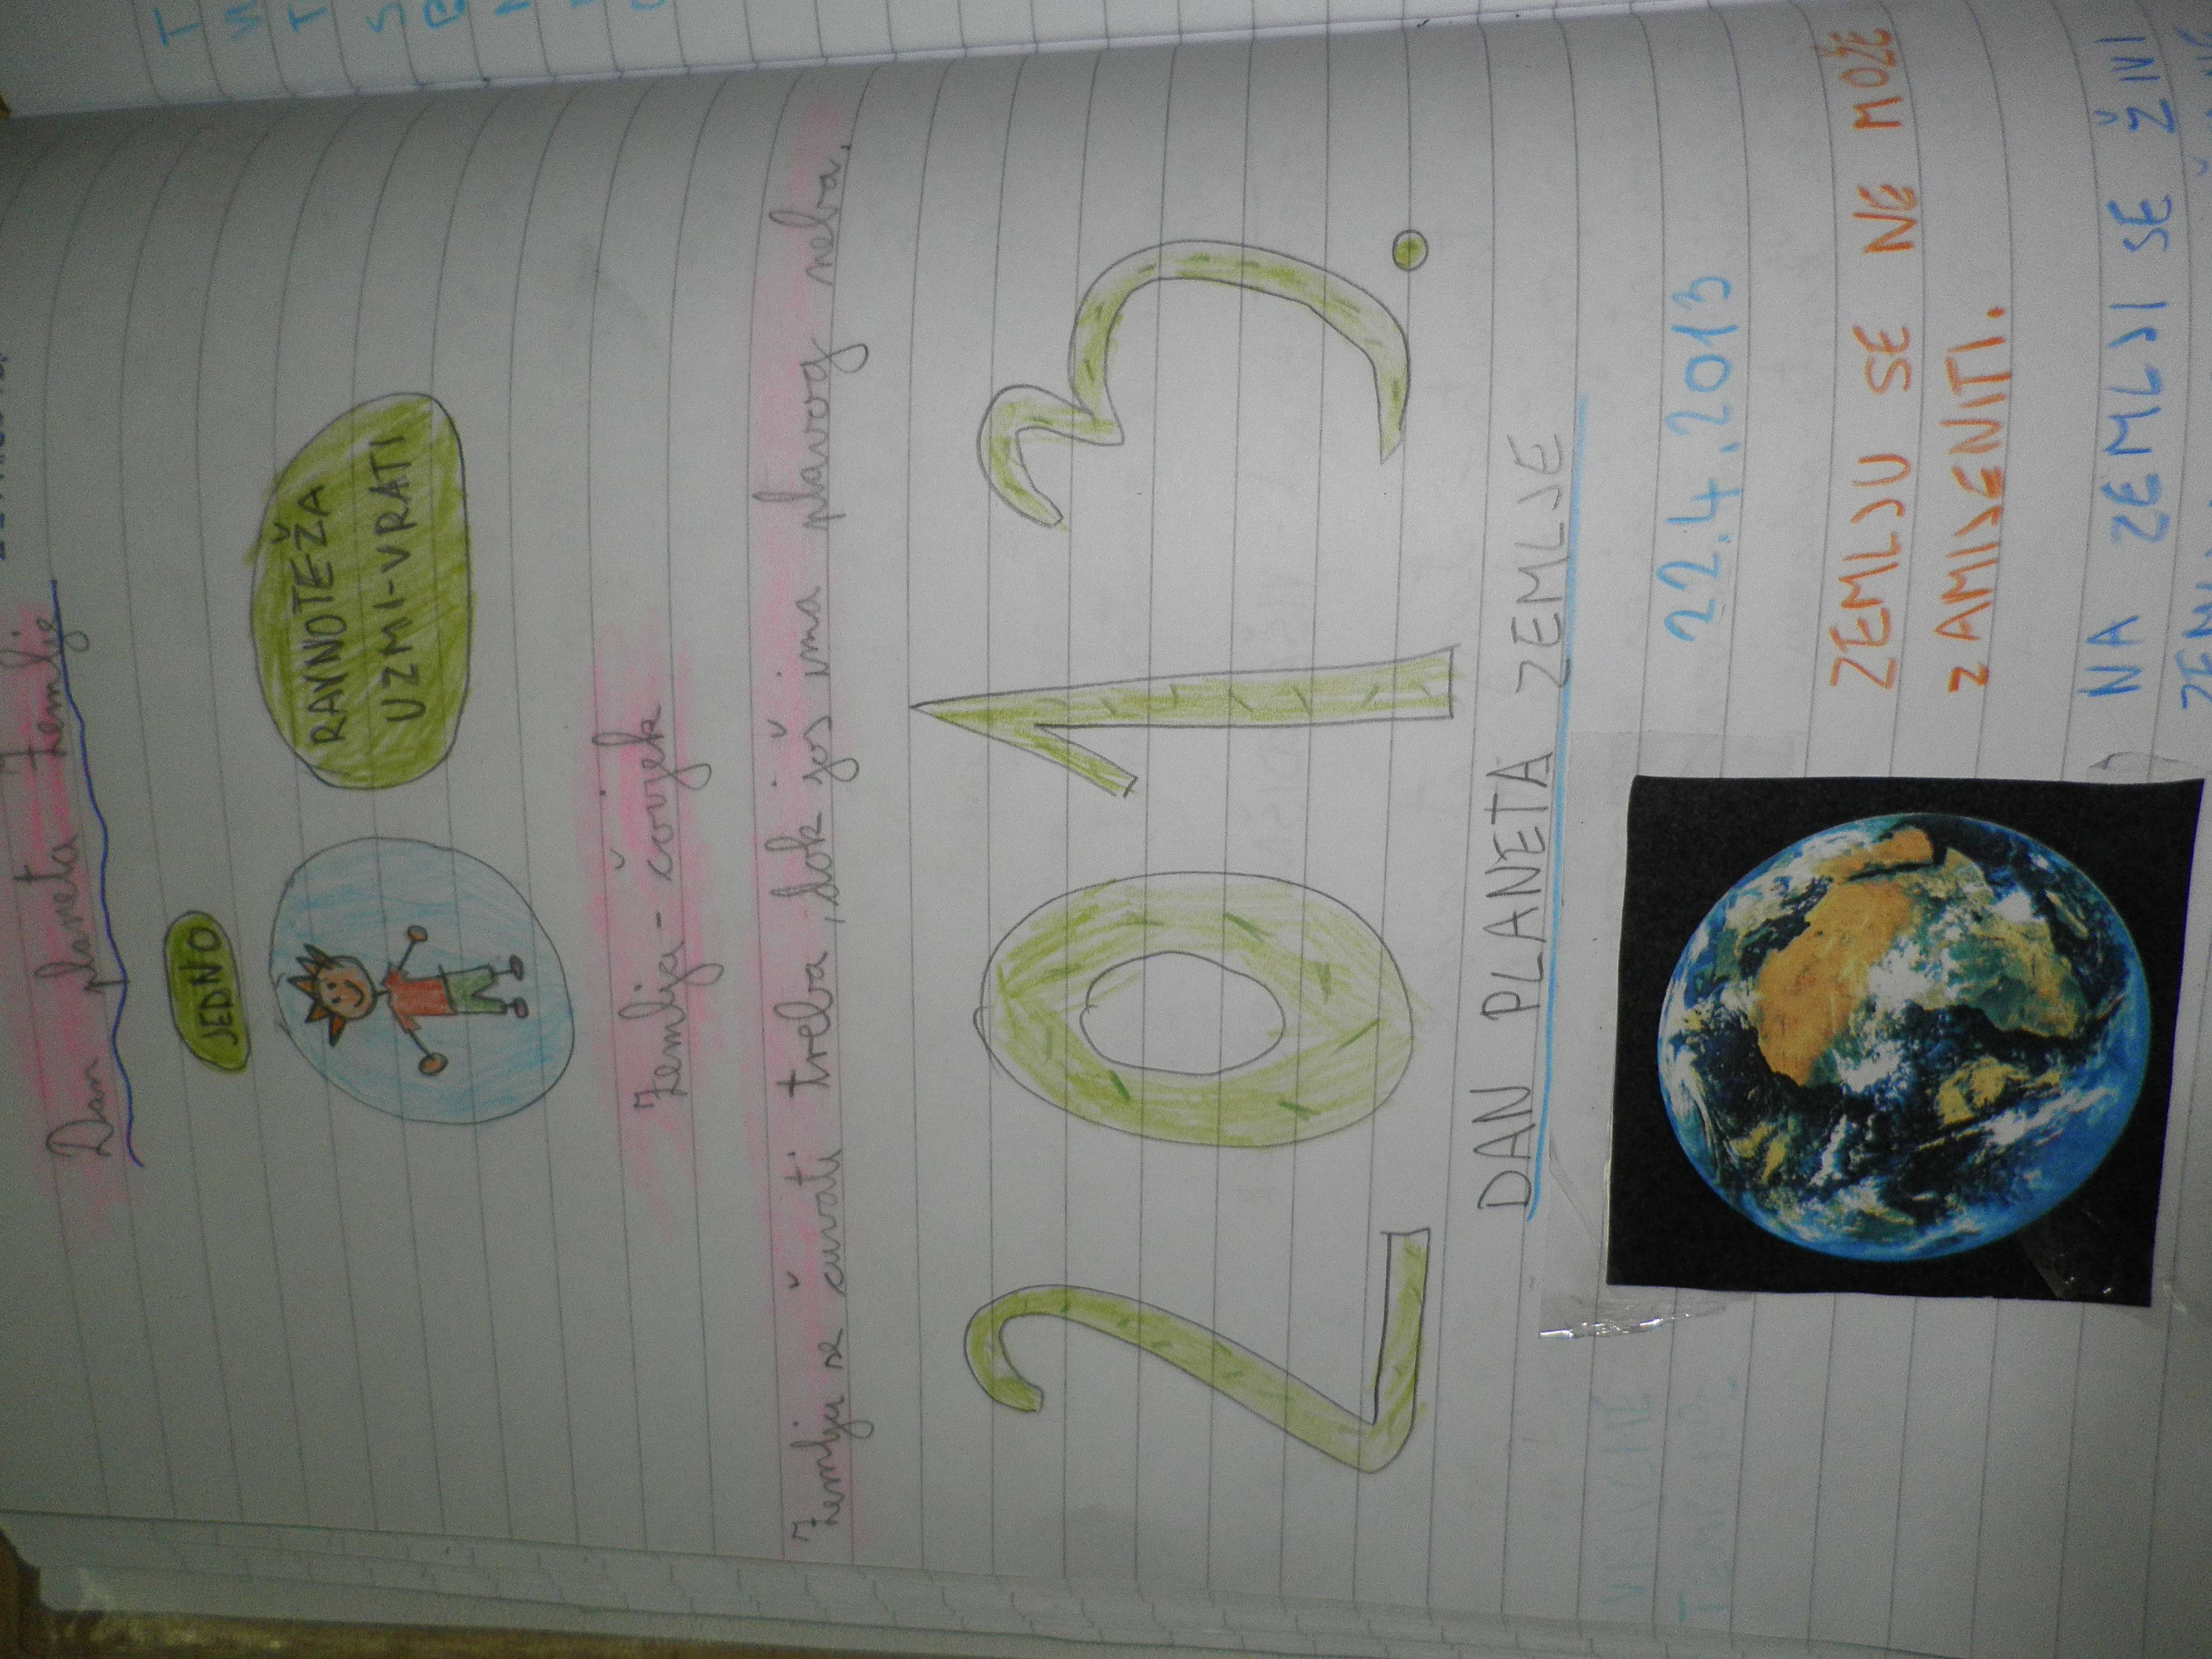 Dan planeta Zemlje
JEDNO
RAVNOTEŽA
UZMI-VRATI
Zemlja - čovjek
Zemlju se čuvati treba, dok još ima plavog neba.
2013.
DAN PLANETA ZEMLJE
22.4.2013
ZEMLJU SE NE MOŽE
ZAMIJENITI.
NA ZEMLJI SE ŽIVI